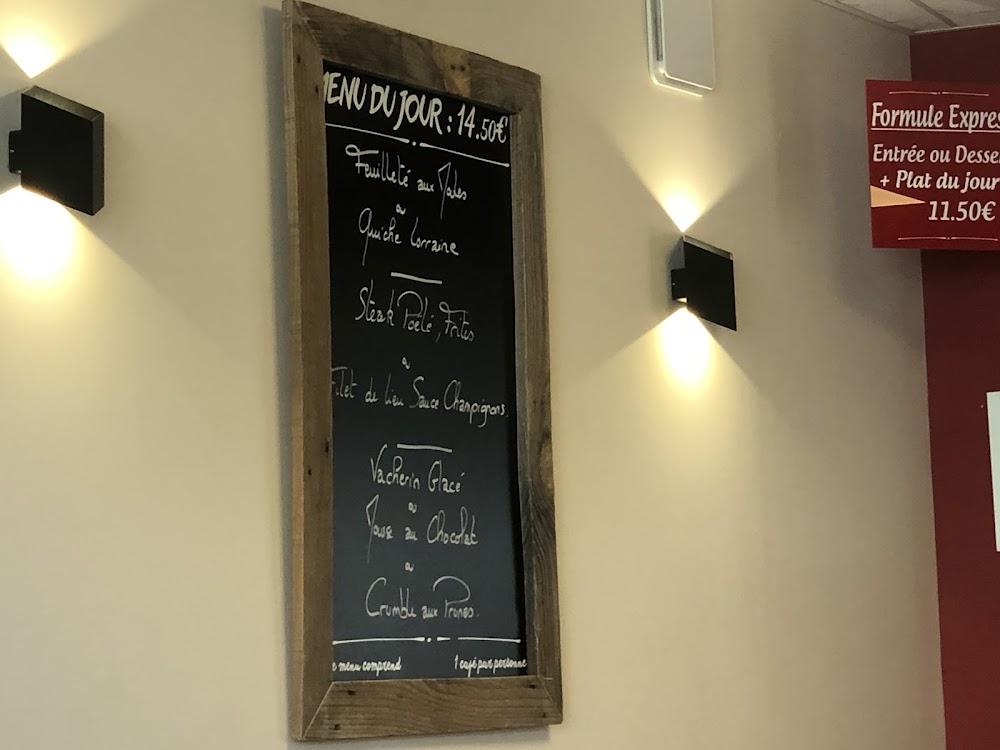 MENU DU JOUR : 14.50€
Feuilleté aux
ou
Quiche Lorraine
Steak Poêlé, Frites
ou
Filet de lieu Sauce Champignons.
Vacherin Glacé
ou
Mousse au Chocolat
ou
Crumble aux Prunes.
menu comprend 1 café par personne
Formule Expres
Entrée ou Desse
+ Plat du jour
11.50€